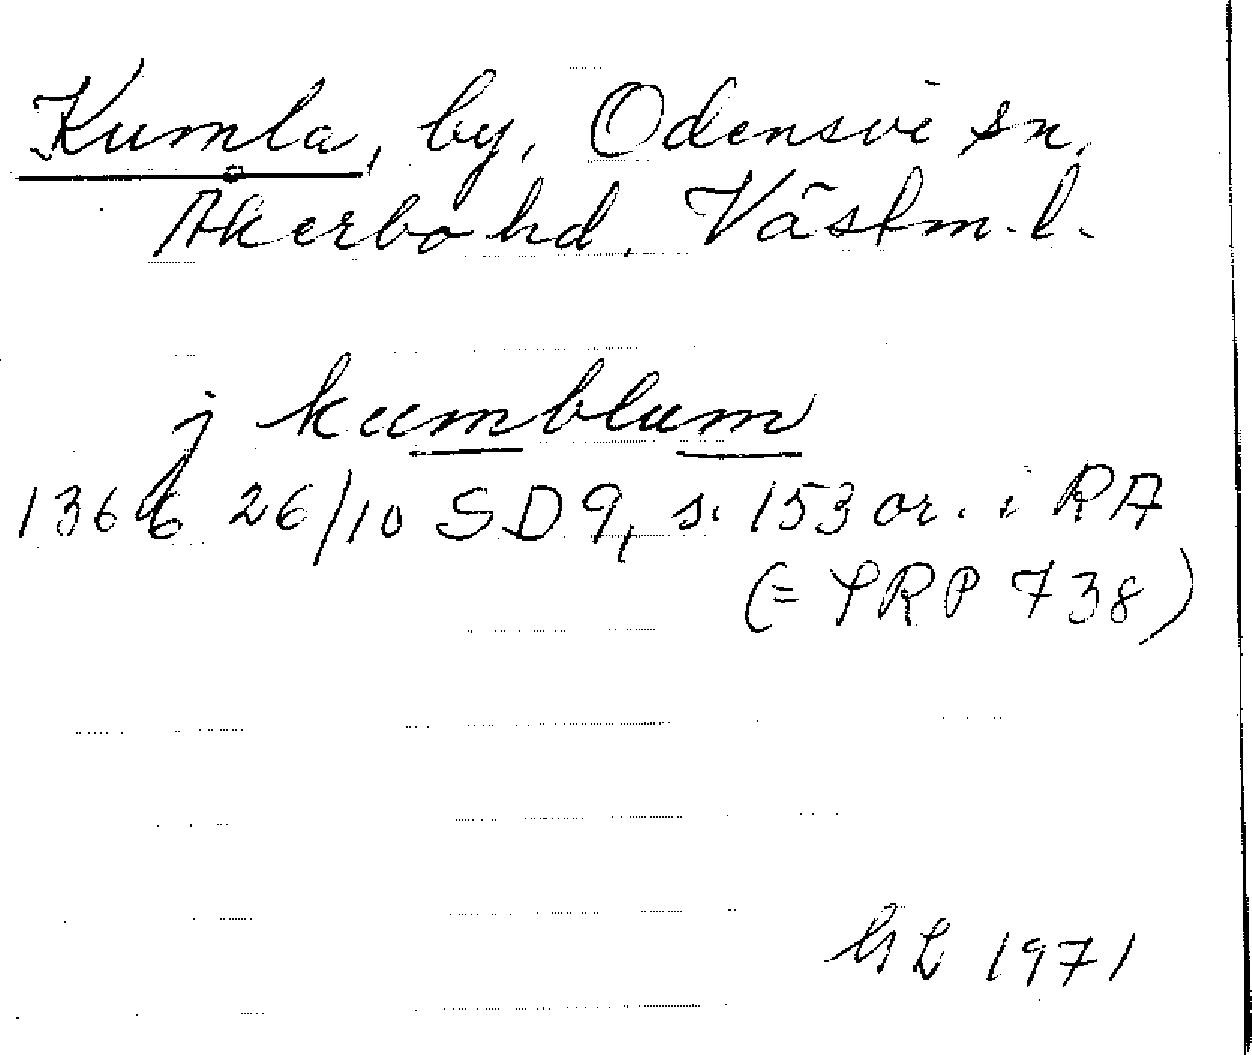 Kumla, by, Odensvi sn,
Åkerbo hd. Västm. l.
j kumblum
1366 26/10 SD 9, s. 153 or. i RA
(= SRP 738)
GL 1971